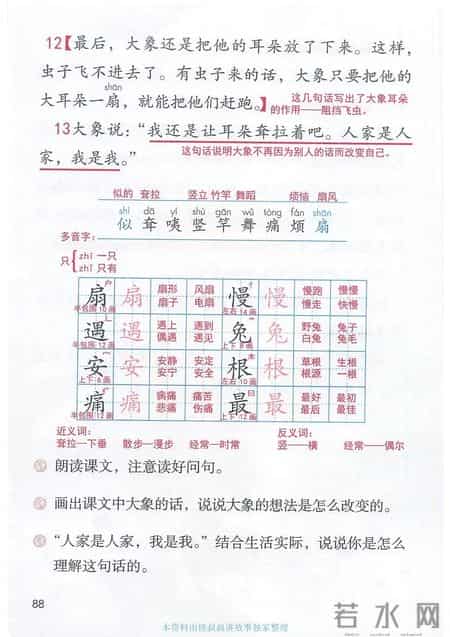 12【最后，大象还是把他的耳朵放了下来。这样，
虫子飞不进去了。有虫子来的话，大象只要把他的
shān
大耳朵一扇，就能把他们赶跑。】这几句话写出了大象耳朵
的作用——阻挡飞虫。
13大象说：“我还是让耳朵耷拉着吧。人家是人
家，我是我。”
这句话说明大象不再因为别人的话而改变自己。
似的 耷拉 竖立 竹竿 舞蹈 烦恼 扇风
shì dā yí shù gān wǔ tòng fán shān
似 耷 咦 竖 竿 舞 痛 烦 扇
多音字：
只{zhī 一只
zhǐ 只有
扇 扇 扇形 风扇 慢 慢 慢跑 慢慢
扇子 电扇 慢走 快慢
半包围 10画 左右 14画
遇 遇 遇上 遇到 兔 兔 野兔 兔子
偶遇 遇见 白兔 兔毛
半包围 12画 上下 8画
安 安 安静 安定 根 根 草根 生根
安宁 安全 根源 一根
上下 6画 左右 10画
痛 痛 病痛 痛苦 最 最 最好 最初
悲痛 伤痛 最后 最佳
半包围 12画 上下 12画
近义词： 反义词：
耷拉—下垂 散步—漫步 经常—时常 竖——横 经常——偶尔
朗读课文，注意读好问句。
画出课文中大象的话，说说大象的想法是怎么改变的。
“人家是人家，我是我。”结合生活实际，说说你是怎么
理解这句话的。
88
若水网